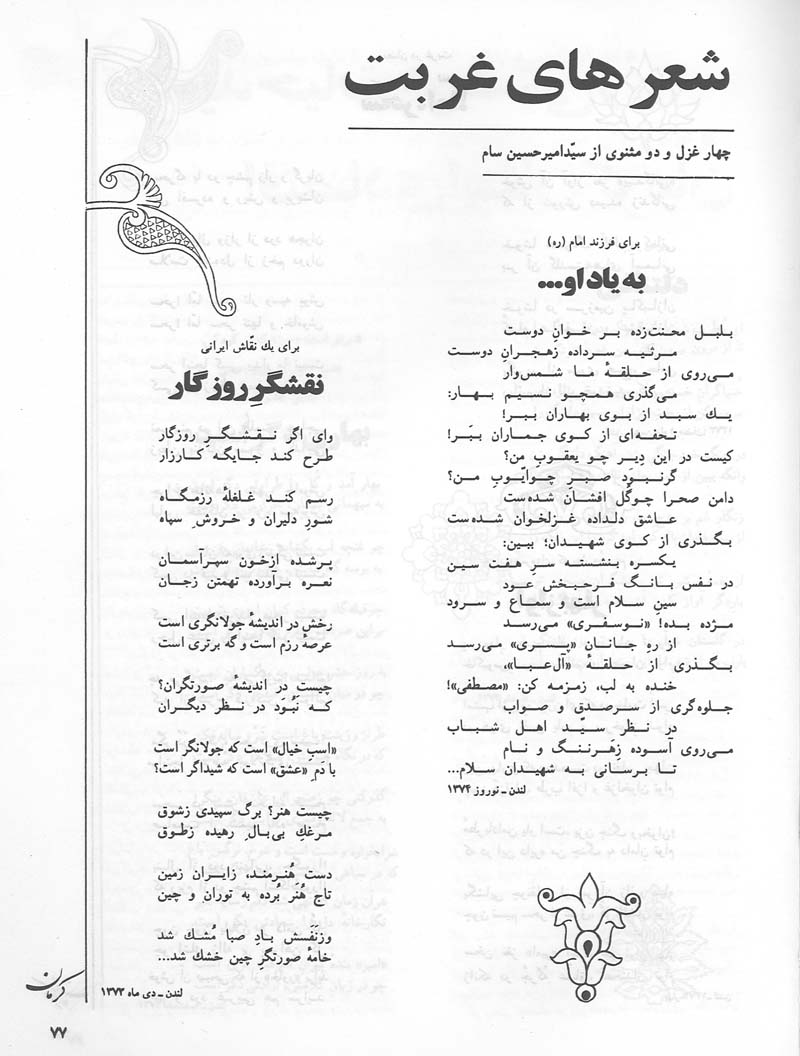 شعرهای غربت
چهار غزل و دو مثنوی از سیّدامیرحسین سام
برای فرزند امام (ره)
به یاد او...
بلبل محنت‌زده بر خوانِ دوست
مرثیه سرداده زهجرانِ دوست
می‌روی از حلقهٔ ما شمس‌وار
می‌گذری همچو نسیم بهار:
یک سبد از بوی بهاران ببر!
تحفه‌ای از کوی جماران ببَر!
کیست در این دِیر چو یعقوبِ من؟
گرنبودِ صبرِ چوایّوبِ من؟
دامن صحرا چوگل افشان شده‌ست
عاشق دلداده غزلخوان شده‌ست
بگذری از کوی شهیدان؛ ببین:
یکسره بنشسته سرِ هفت سین
در نفس بانگ فرحبخش عود
سینِ سلام است و سماع و سرود
مژده بده! «نوسفری» می‌رسد
از رهِ جانان «پسری» می‌رسد
بگذری از حلقهٔ «آل‌عبا»،
خنده به لب، زمزمه کن: «مصطفی»!
جلوه‌گری از سرصدق و صواب
در نظر سیّد اهل شباب
می‌روی آسوده زِهَرننگ و نام
تا برسانی به شهیدان سلام...
لندن ـ نوروز ۱۳۷۴
برای یک نقّاش ایرانی
نقشگرِ روزگار
وای اگر نقشگرِ روزگار
طرح کند جایگه کارزار
رسم کند غلغلهٔ رزمگاه
شورِ دلیران و خروشِ سپاه
پرشده ازخون سپرآسمان
نعره برآورده تهمتن زجان
رخش در اندیشهٔ جولانگری است
عرصهٔ رزم است و گه برتری است
چیست در اندیشهٔ صورتگران؟
که نَبُوَد در نظر دیگران
«اسبِ خیال» است که جولانگر است
یا دَمِ «عشق» است که شیداگر است؟
چیست هنر؟ برگ سپیدی زشوق
مرغکِ بی‌بالِ رهیده زطوق
دست هُنرمند، زایران زمین
تاج هُنَر بُرده به توران و چین
وزنَفَسش بادِ صبا مُشک شد
خامهٔ صورتگرِ چین خشک شد...
لندن ـ دی ماه ۱۳۷۳
کرمان
۷۷